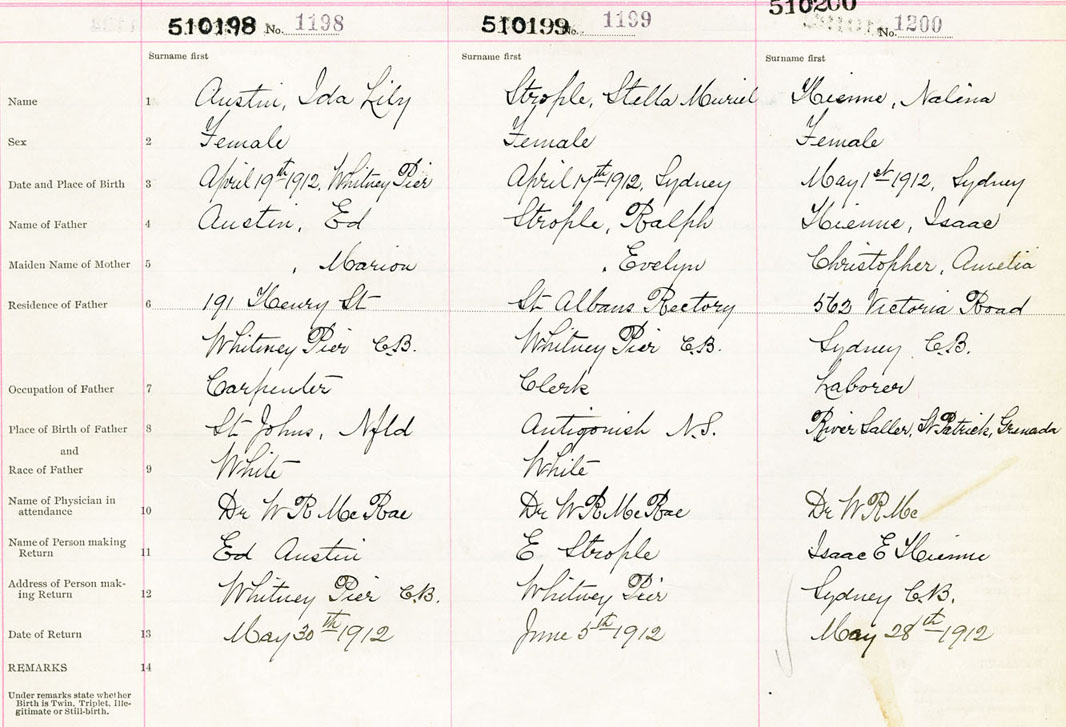 510198 No. 1198 510199 No. 1199 510200 No. 1200
Surname first Surname first Surname first
Name 1 Austin, Ida Lily Strople, Stella Muriel Kienne, Nalina
Sex 2 Female Female Female
Date and Place of Birth 3 April 19th 1912, Whitney Pier April 17th 1912, Sydney May 1st 1912, Sydney
Name of Father 4 Austin, Ed Strople, Ralph Kienne, Isaac
Maiden Name of Mother 5 , Marion , Evelyn Christopher, Amelia
Residence of Father 6 191 Henry St St Albans Rectory 562 Victoria Road
Whitney Pier C.B. Whitney Pier C.B. Sydney C.B.
Occupation of Father 7 Carpenter Clerk Laborer
Place of Birth of Father 8 St Johns, Nfld Antigonish N.S. River Saller, St Patrick, Grenada
and
Race of Father 9 White White
Name of Physician in
attendance 10 Dr W R McRae Dr W R McRae Dr W R Mc
Name of Person making
Return 11 Ed Austin E Strople Isaac E Kienne
Address of Person mak-
ing Return 12 Whitney Pier C.B. Whitney Pier Sydney C.B.
Date of Return 13 May 30th 1912 June 5th 1912 May 28th 1912
REMARKS 14
Under remarks state whether
Birth is Twin, Triplet, Ille-
gitimate or Still-birth.